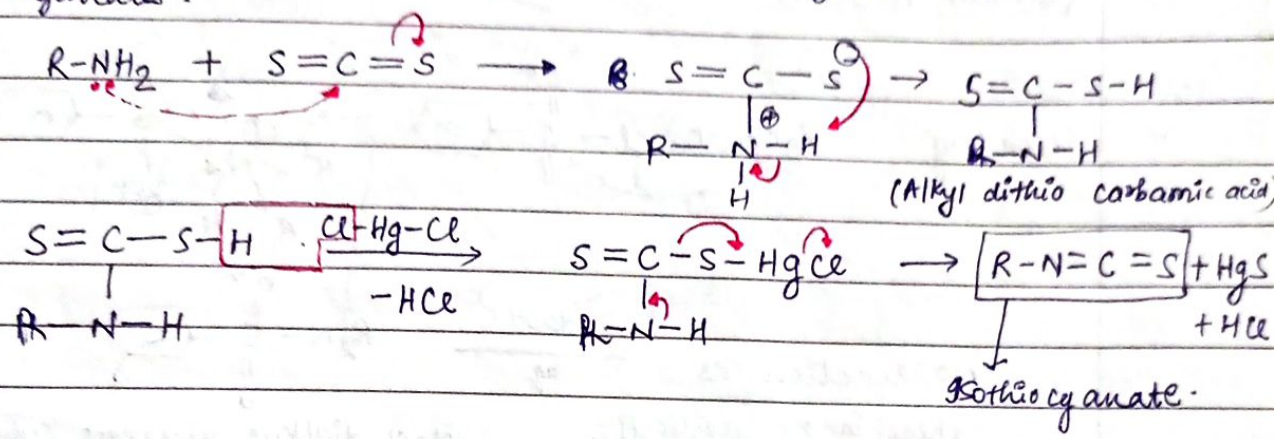 R-NH2 + S=C=S → S=C-S⊖ → S=C-S-H
⊕
R-N-H R-N-H
H (Alkyl dithio carbamic acid)
S=C-S-H Cl-Hg-Cl S=C-S-HgCl → R-N=C=S + HgS
-HCl + HCl
R-N-H R-N-H
Isothiocyanate.